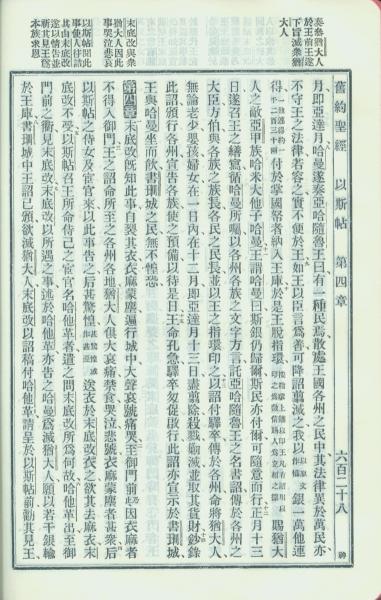 舊約聖經 以斯帖 第四章 六百二十八
奏猶大人
於王前王遂
下旨滅衆猶
大人
月即亞達月哈曼遂奏亞哈隨魯王曰有一種民焉散處王國各州之民中其法律異於萬民亦
不守王之法律若容之實不便於王如王以臣言爲善可降詔翦滅之我以銀一萬他連
得付於掌國帑者納入王庫於是王脫指環賜猶大
人之敵亞甲族哈米大他子哈曼王謂哈曼曰斯銀仍歸爾斯民亦付爾可隨意而行正月十三
日遂召王之繕寫循哈曼所囑以各州各族之文字方言託亞哈隨魯王之名書詔傳於各州之
大臣方伯與各族之族長各民之民長並以王之指環印之以詔付驛卒傳於各州命將猶大人
無論老少嬰孩婦女在一日內在十二月即亞達月十三日盡翦除殺戮翦滅並取其貨財鈔錄
此詔頒行各州宣告各族使之預備以待是日王命孔急驛卒匆促啟行此詔亦宣示於書珊城
王與哈曼坐而飲書珊城之民無不惶惑
末底改與衆
猶大人因此
事哭泣悲哀
第四章 末底改既知此事自裂其衣衣麻蒙塵遍行城中大聲哀號痛哭至御門前因衣麻者
不得入御門王之詔命所至之各州各地猶大人俱大哀痛禁食哭泣悲號衣麻蒙塵者甚衆
以斯帖聞此
事使人往詰
其由末底改
遂以情告並
祈其見王爲
本族求恩
以斯帖之侍女及宦官來以此事告之后甚驚惶送衣於末底改衣之欲其去麻衣末
底改不受以斯帖召王所命侍己之宦官名哈他革者遣之問末底改所爲何故哈他革出至御
門前之衢見末底改末底改以所遇之事述於哈他革亦告之哈曼爲滅猶大人願以若干銀輸
於王庫書珊城中王詔已頒欲滅猶大人末底改以詔稿付哈他革請呈於以斯帖前勸其見王